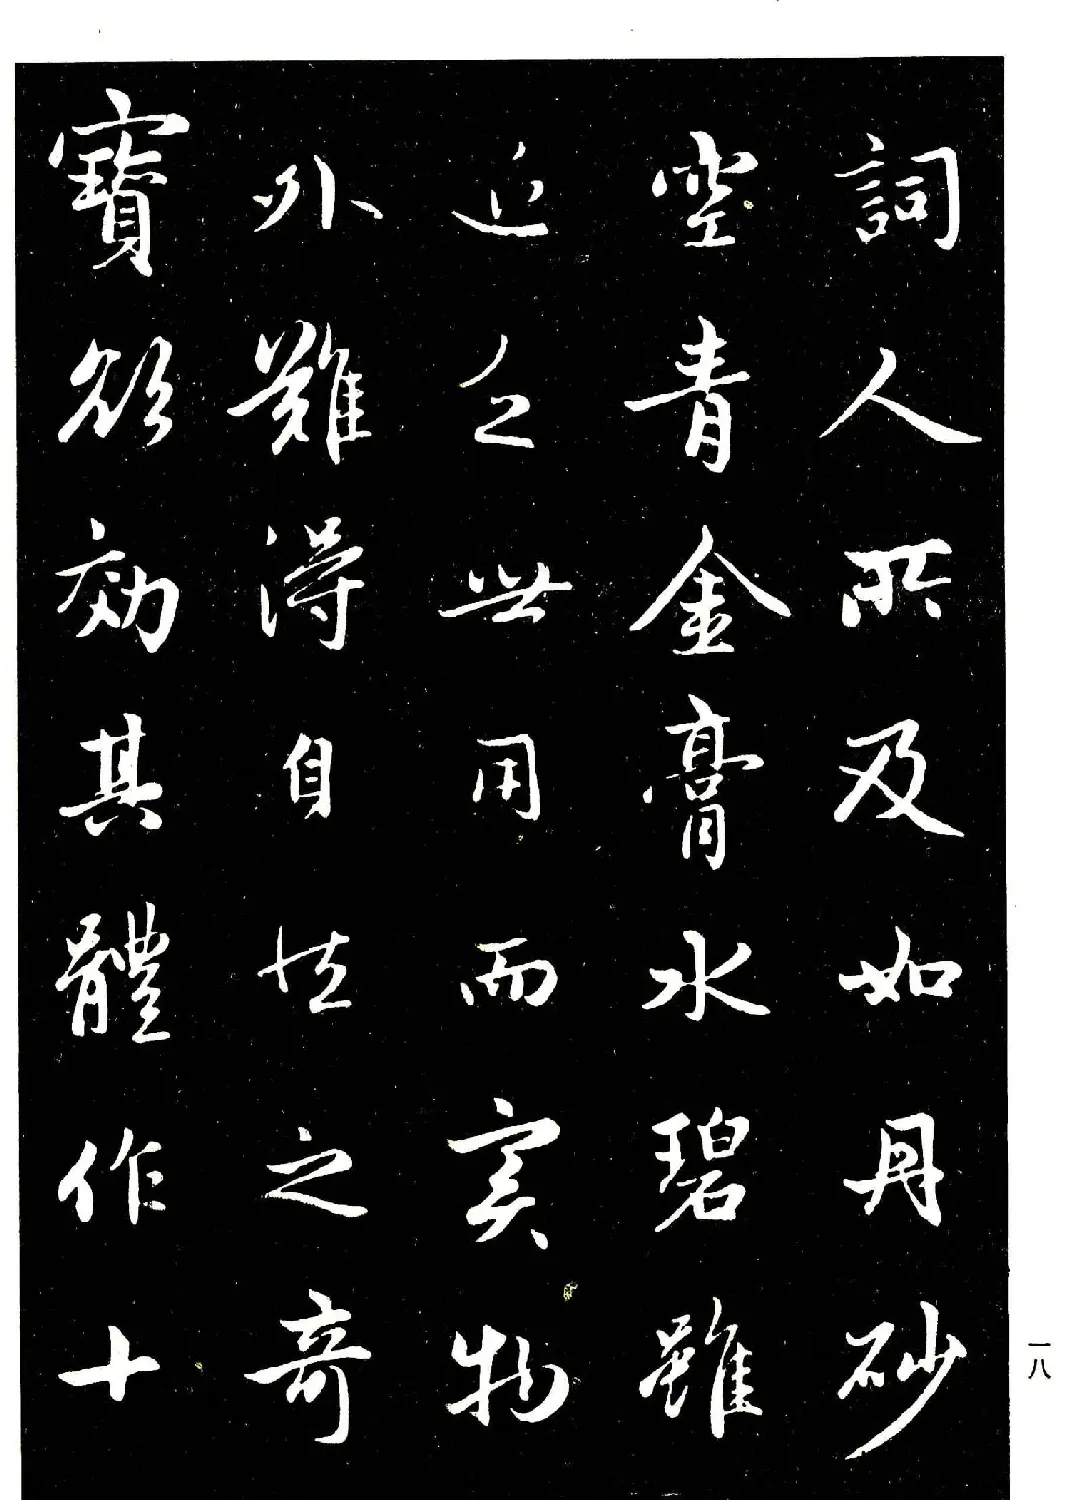 詞人所及如丹砂
空青金膏水碧雖
近乏世用而實物
外難得自然之奇
寶欲效其體作十
一八